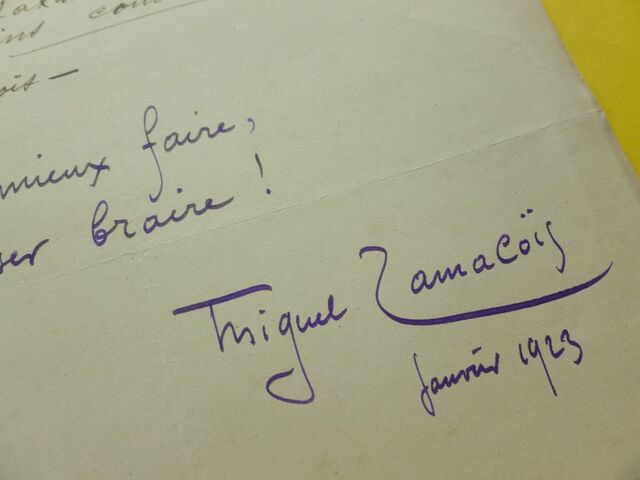 ins cons
oïs —
mieux faire,
ser braire !
Miguel Zamacoïs
Janvier 1923